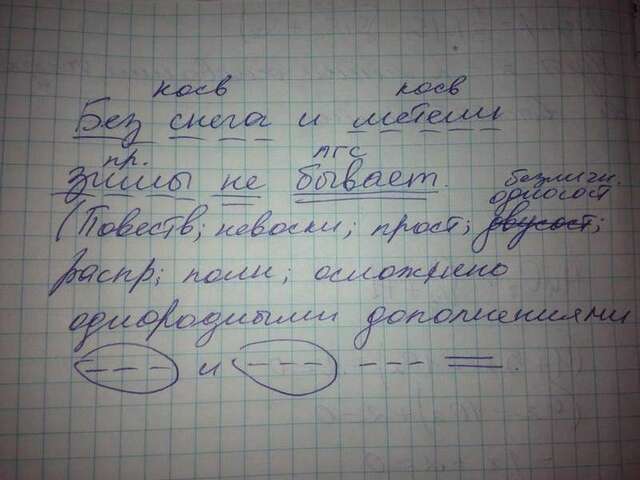 косв косв
Без снега и метели
пр. ПГС
зимы не бывает.
безличн.
односост
(Повеств; невоскл; прост; двусост;
распр; полн; осложнено
однородными дополнениями
и